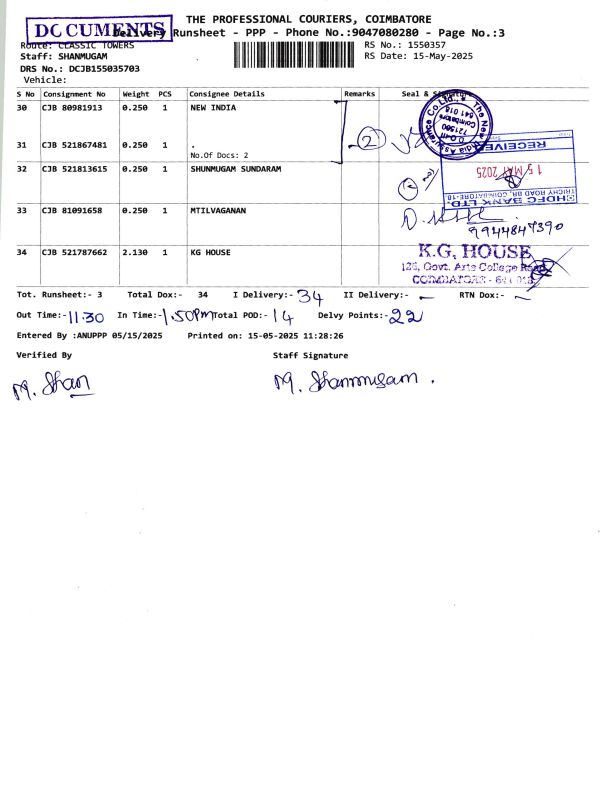 THE PROFESSIONAL COURIERS, COIMBATORE
DOCUMENTS
Delivery Runsheet - PPP - Phone No.:9047080280 - Page No.:3
Route: CLASSIC TOWERS
RS No.: 1550357
Staff: SHANMUGAM
RS Date: 15-May-2025
DRS No.: DCJB155035703
Vehicle:
S No Consignment No Weight PCS Consignee Details Remarks Seal & Signature
30 CJB 80981913 0.250 1 NEW INDIA
The New India Assurance Co.Ltd.,
721500
Coimbatore
641 018
2
31 CJB 521867481 0.250 1 .
No.Of Docs: 2
RECEIVED
15 MAY 2025
HDFC BANK LTD.
TRICHY ROAD BR, COIMBATORE-18
32 CJB 521813615 0.250 1 SHUNMUGAM SUNDARAM
33 CJB 81091658 0.250 1 MTILVAGANAN
9944847390
34 CJB 521787662 2.130 1 KG HOUSE
K.G. HOUSE
126, Govt. Arts College Road
COIMBATORE - 641 018
Tot. Runsheet:- 3 Total Dox:- 34 I Delivery:- 34 II Delivery:- - RTN Dox:- -
Out Time:- 11.30 In Time:- 1.50pm Total POD:- 14 Delvy Points:- 22
Entered By :ANUPPP 05/15/2025 Printed on: 15-05-2025 11:28:26
Verified By Staff Signature
M. Shan M. Shanmugam.